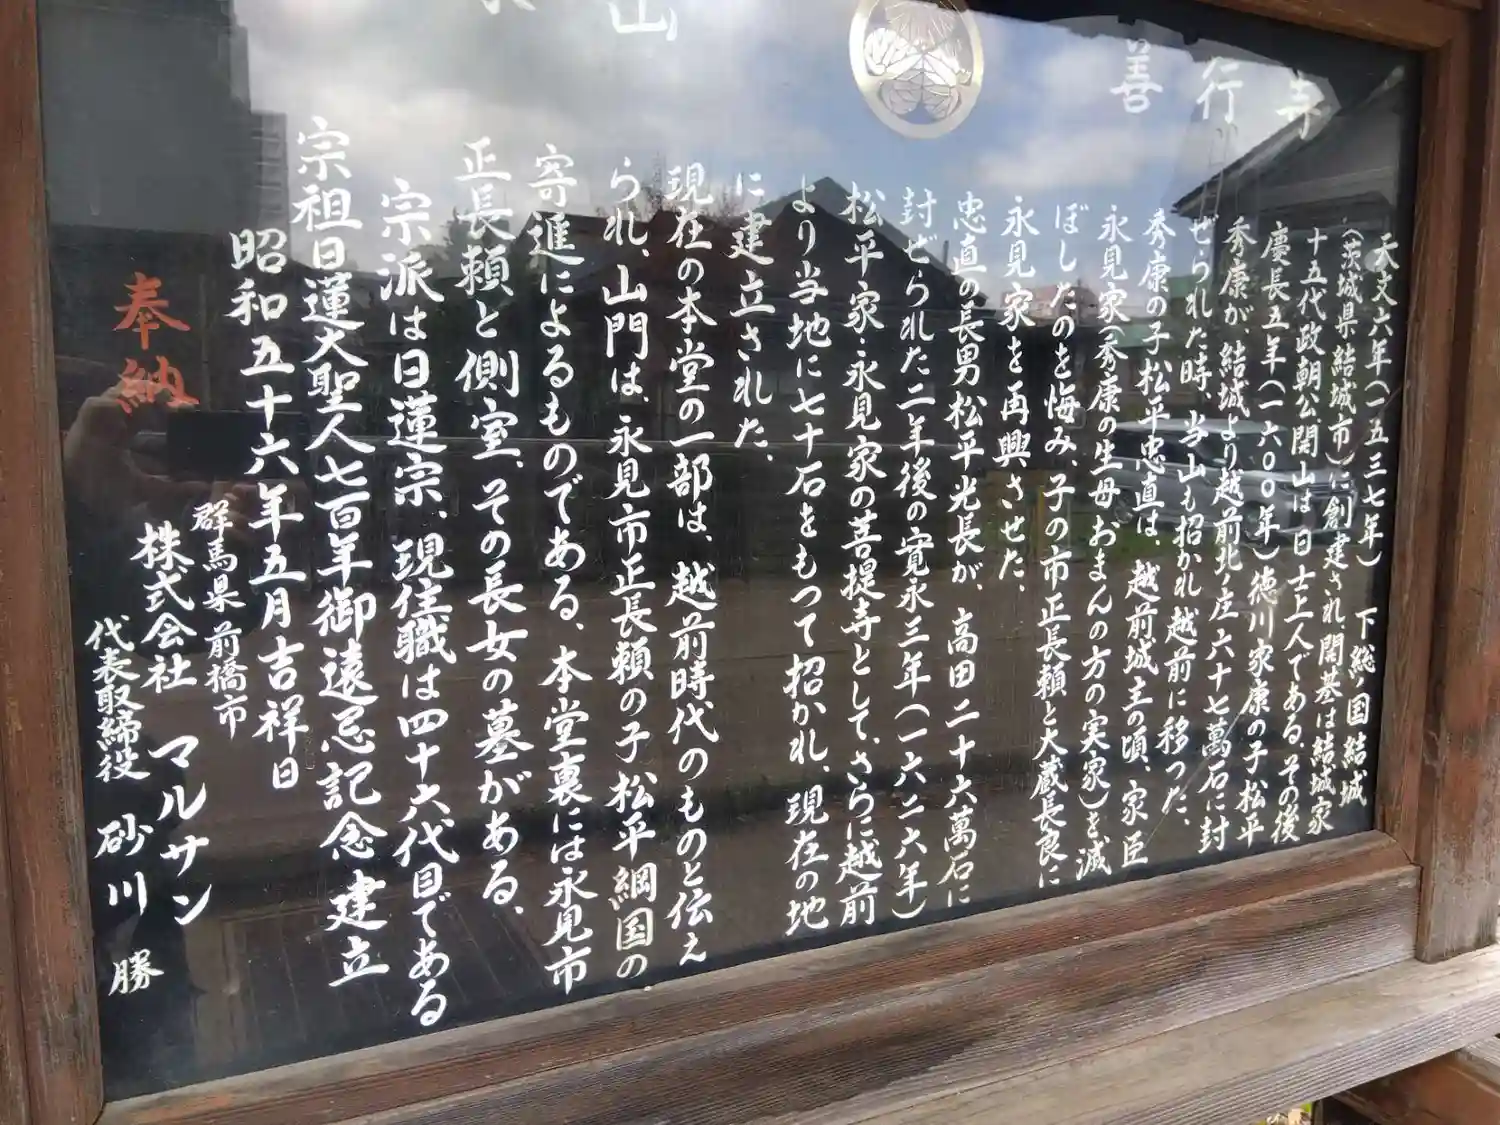 山
善行寺
天文六年(一五三七年) 下総国結城
(茨城県結城市)に創建され、開基は結城家
十五代政朝公、開山は日士上人である。その後
慶長五年(一六〇〇年)徳川家康の子松平
秀康が、結城より越前北ノ庄六十七萬石に封
ぜられた時、当山も招かれ越前に移った。
秀康の子松平忠直は、越前城主の頃、家臣
永見家(秀康の生母おまんの方の実家)を滅
ぼしたのを悔み、子の市正長頼と大蔵長良に
永見家を再興させた。
忠直の長男松平光長が、高田二十六萬石に
封ぜられた二年後の寛永三年(一六二六年)
松平家・永見家の菩提寺として、さらに越前
より当地に七十石をもって招かれ、現在の地
に建立された。
現在の本堂の一部は、越前時代のものと伝え
られ、山門は、永見市正長頼の子松平綱国の
寄進によるものである、本堂裏には永見市
正長頼と側室、その長女の墓がある、
宗派は日蓮宗、現住職は四十六代目である
宗祖日蓮大聖人七百年御遠忌記念建立
昭和五十六年五月吉祥日
群馬県前橋市
株式会社 マルサン
代表取締役 砂川 勝
奉納